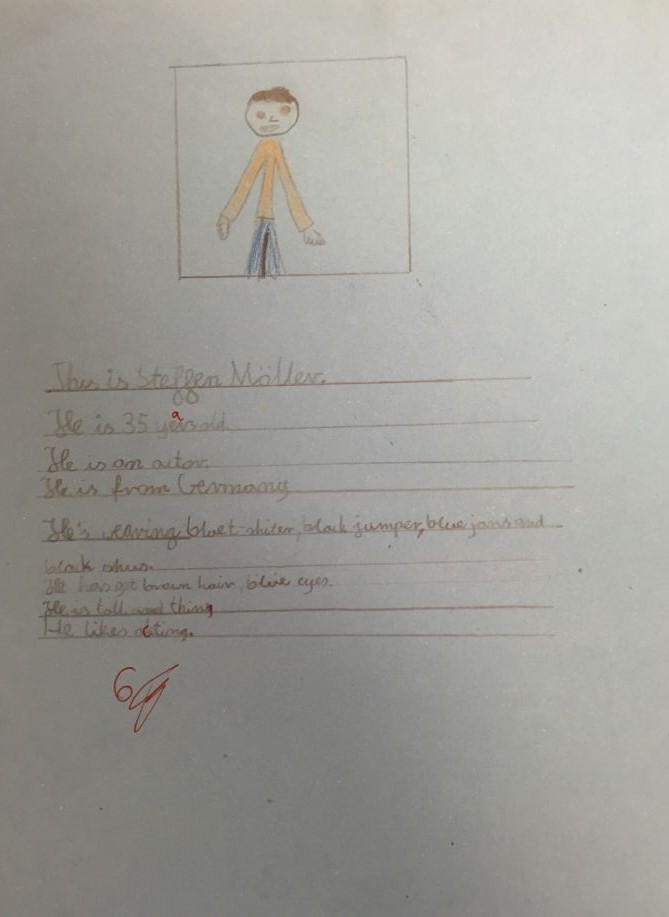 This is Steffen Möller.
He is 35 years old.
He is an actor.
He is from Germany
He's wearing bluet-shiter, black jumper, blue jans and
black shus.
He has got brown hair, blue eyes.
He is tall and thing
He likes acting.
6